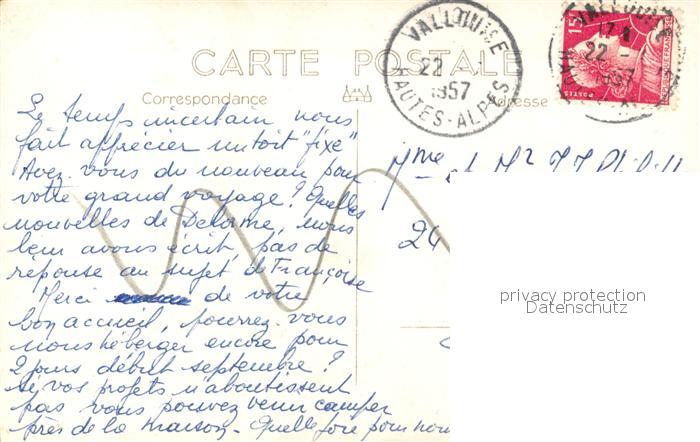 CARTE POSTALE
Correspondance
Adresse
VALLOUISE
22 - -
1957
HAUTES-ALPES
VALLOUISE
22 -
1957
15F
POSTES
Le temps incertain nous
fait apprécier un toit "fixe"
Avez-vous du nouveau pour
votre grand voyage? Quelles
nouvelles de Delorme, nous
leur avons écrit, pas de
réponse au sujet de Françoise
Merci de votre
bon accueil, pourrez-vous
nous héberger encore pour
2 jours début septembre?
Si vos projets n'aboutissent
pas vous pouvez venir camper
près de la maison. Quelle joie pour nou
Mme et Mr
24
privacy protection
Datenschutz